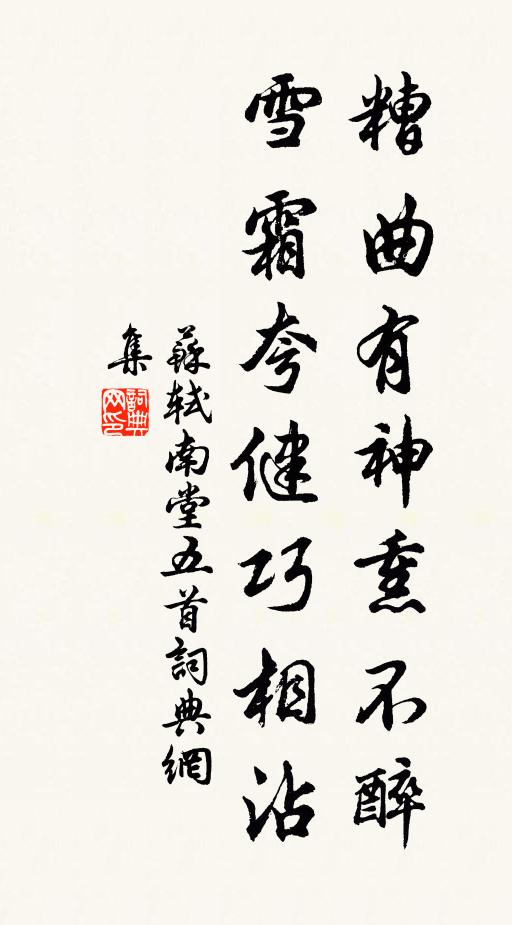 糟曲有神熏不醉
雪霜夸健巧相沾
蘇軾南堂五首詞典網
集
詞典
网印